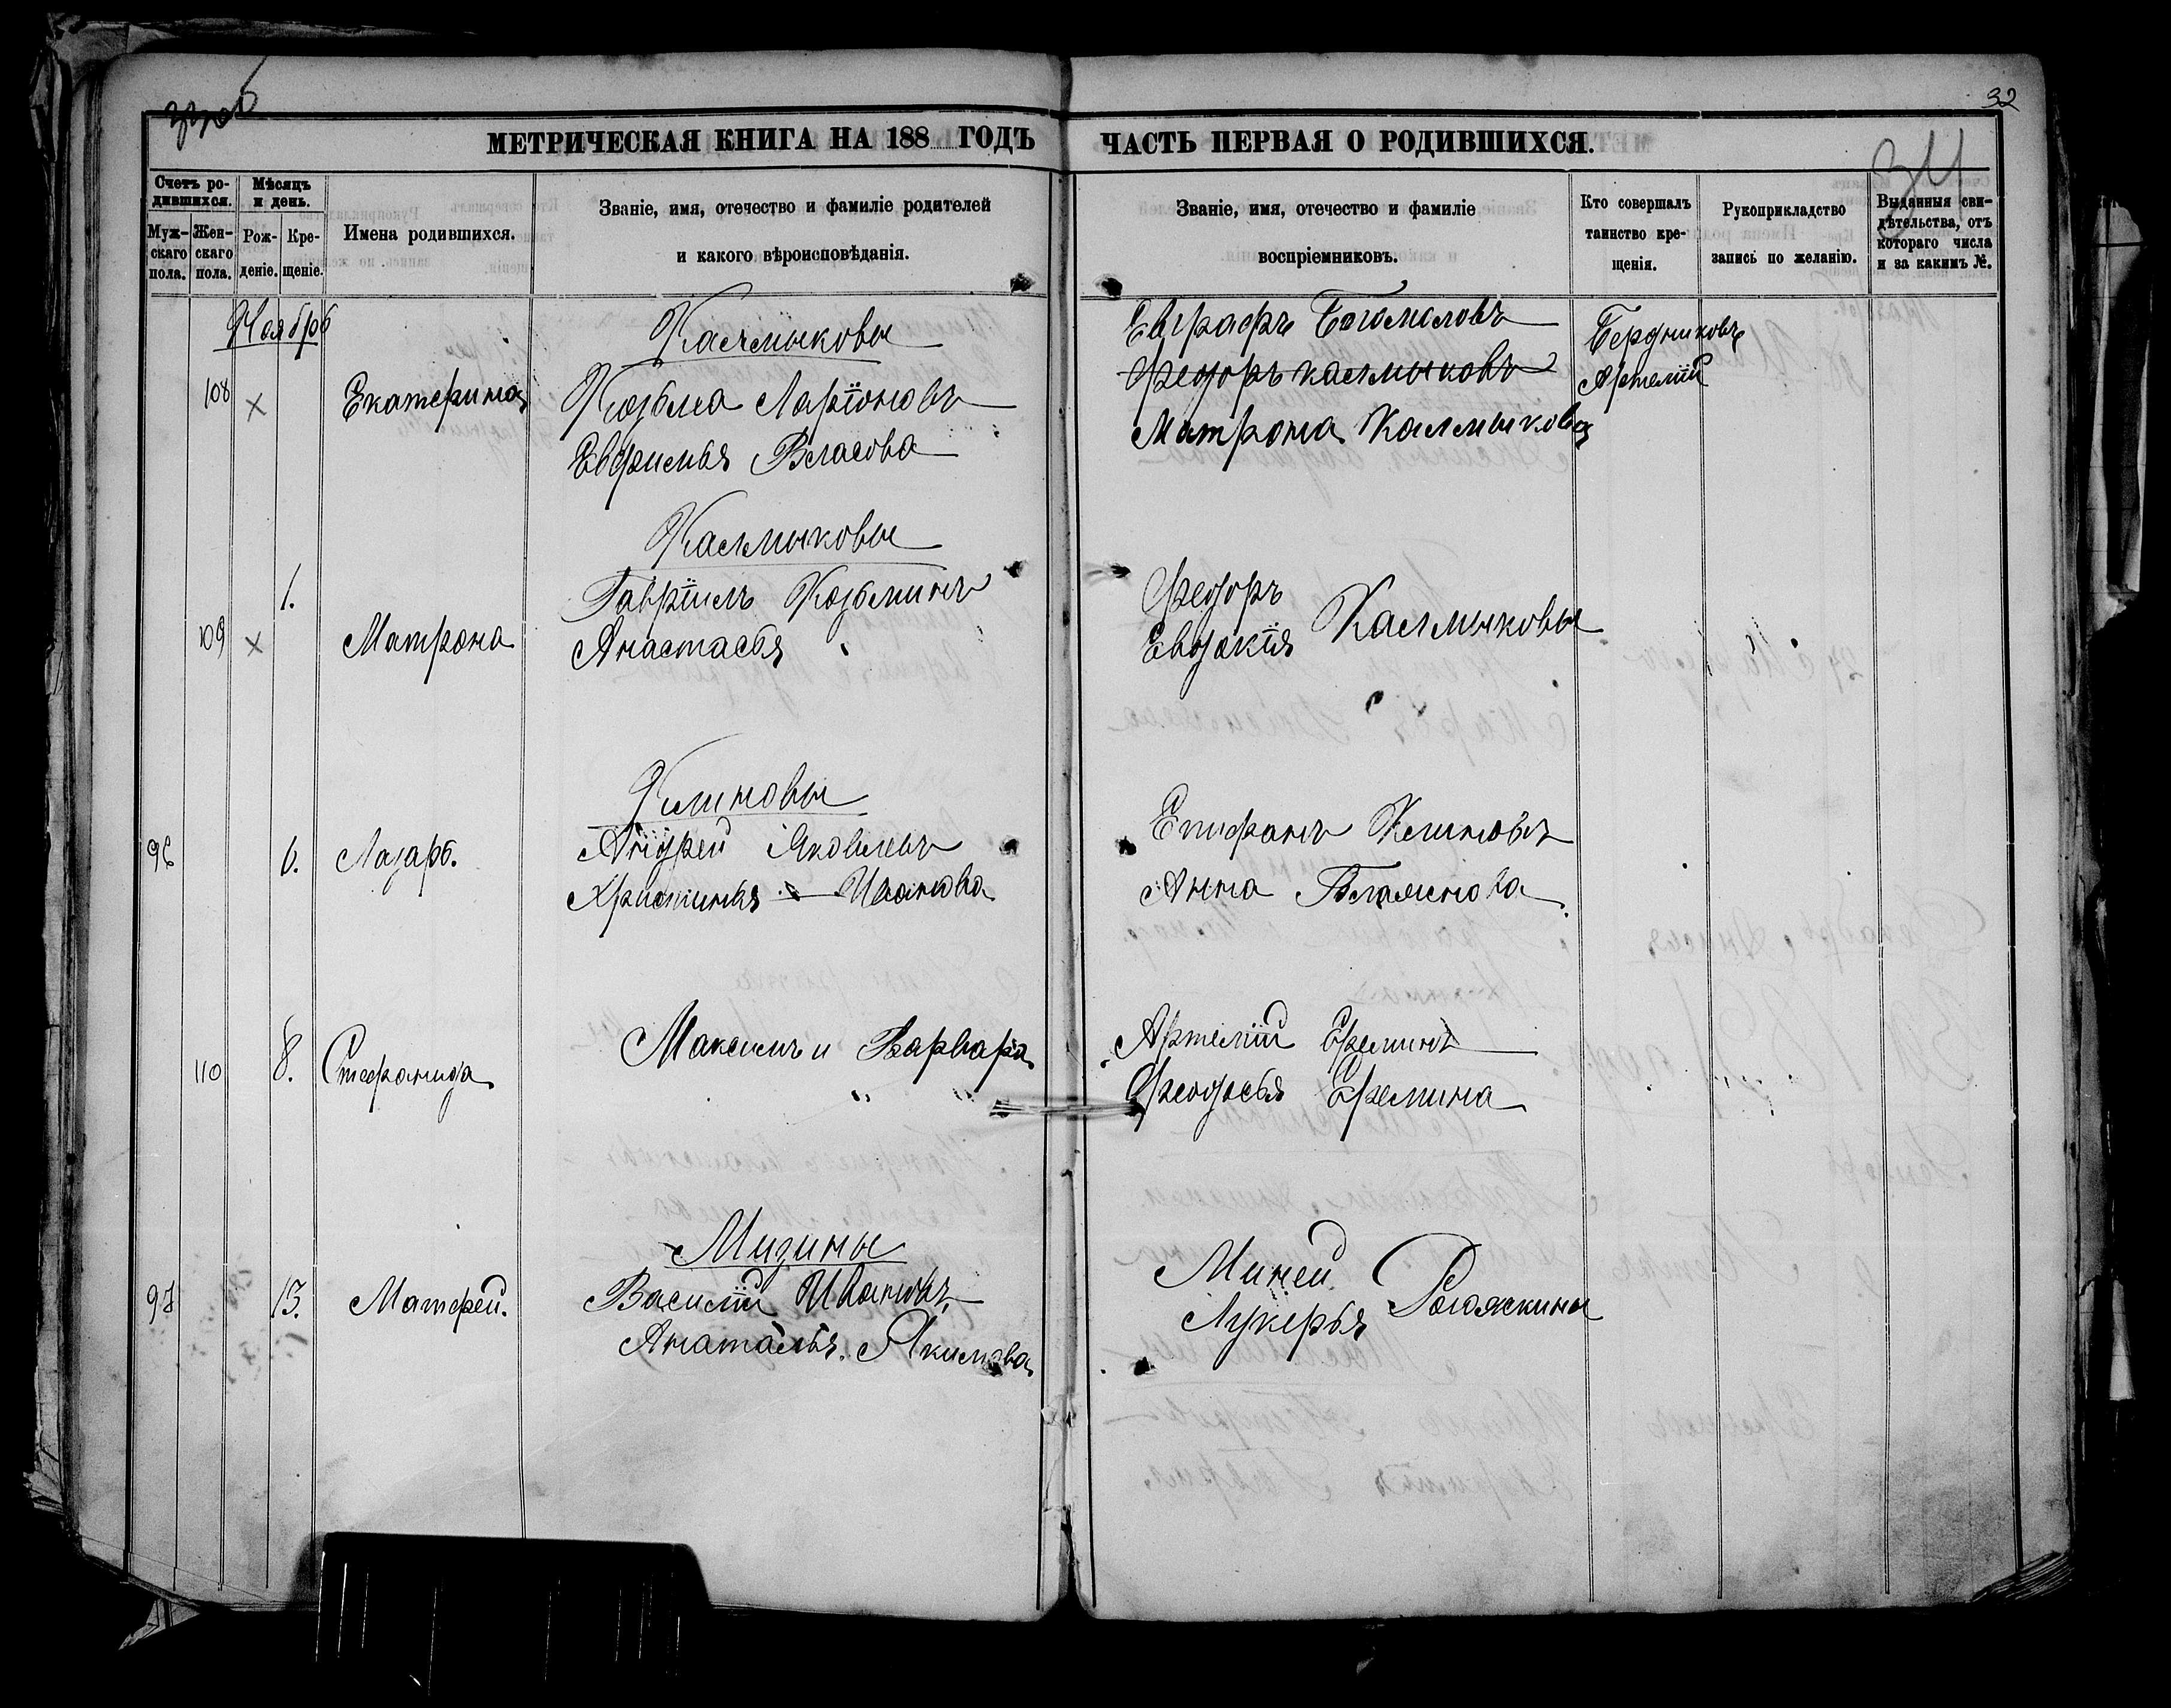 33об
32
34
МЕТРИЧЕСКАЯ КНИГА НА 188 ГОДЪ
ЧАСТЬ ПЕРВАЯ О РОДИВШИХСЯ.
Счетъ ро-
дившихся.
Муж-
скаго
пола.
Жен-
скаго
пола.
Мѣсяцъ
и день.
Рож-
деніе.
Кре-
щеніе.
Имена родившихся.
Званіе, имя, отечество и фамиліе родителей
и какого вѣроисповѣданія.
Званіе, имя, отечество и фамиліе
воспріемниковъ.
Кто совершалъ
таинство кре-
щенія.
Рукоприкладство
запись по желанію.
Выданныя сви-
дѣтельства, отъ
котораго числа
и за какимъ №.
Ноябрь
108 × Екатерина
Калмыковы
Козьма Ларіоновъ
Евфимья Власова
Евграфъ Богомоловъ
Федоръ Калмыковъ
Матрона Калмыкова
Бердниковъ
Артемій
109 × 1. Матрона
Калмыковы
Гавріилъ Козьминъ
Анастасья
Федоръ
Евдокія Калмыковы
96 6. Лазарь.
Климовы
Андрей Яковлевъ
Христинья Иванова
Епифанъ Климовъ
Анна
110 8. Стефанида
Максимъ и Варвара
Артемій Ереминъ
Феодосья Еремина
97 13. Матфей.
Мизины
Василій Ивановъ
Анаталья Якимова
Миней
Лукерья Рогожкины